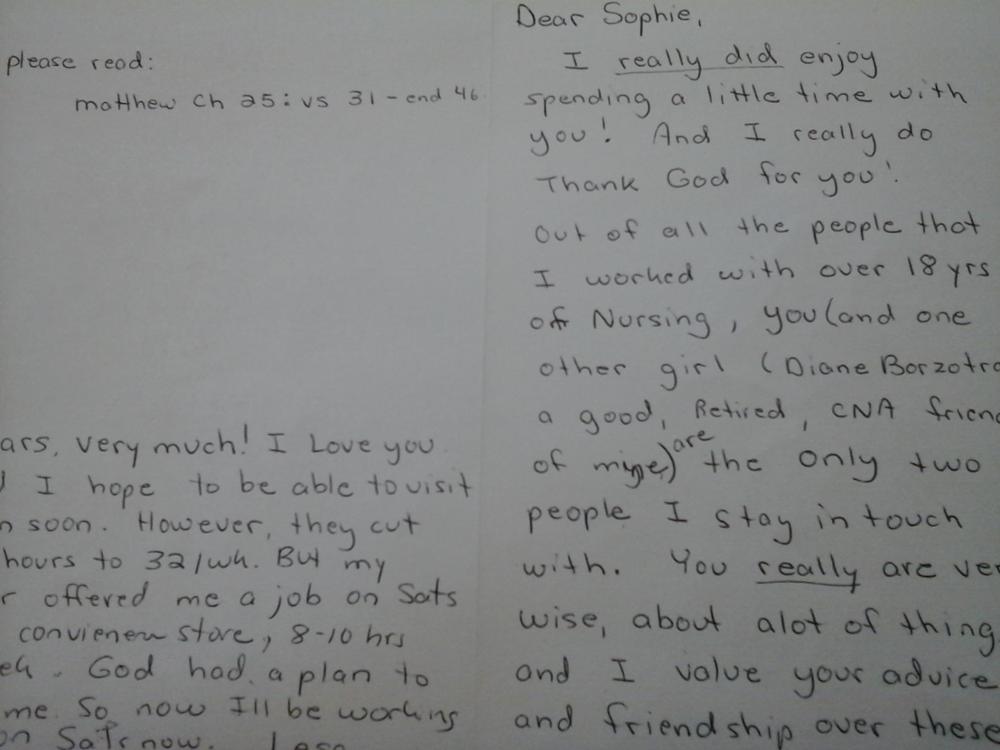 please read:
matthew Ch 25: vs 31 - end 46
ars, very much! I Love you
I hope to be able to visit
n soon. However, they cut
hours to 32/wk. But my
r offered me a job on Sats
convienen store, 8-10 hrs
God had a plan to
me. So now I'll be working
on Sats now.
Dear Sophie,
I really did enjoy
spending a little time with
you! And I really do
Thank God for you!
Out of all the people that
I worked with over 18 yrs
of Nursing, you (and one
other girl (Diane Borzotra
a good, Retired, CNA frien
of mine) are the only two
people I stay in touch
with. You really are ver
wise, about alot of thing
and I value your advice
and friendship over these